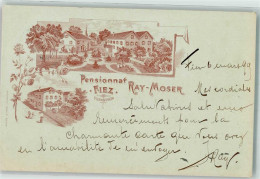 Pensionnat
RAY-MOSER
FIEZ
Mes cordiales
Salutations et mes
Remerciements pour la
Charmante Carte que vous avez
eu l'amabilité de m'envoyer
Ray